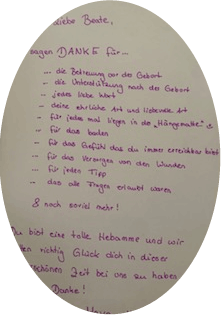 liebe Beate,
sagen DANKE für...
... die Betreuung vor der Geburt
... die Unterstützung nach der Geburt
.. jedes liebe Wort
- deine ehrliche Art und liebevolle Art
- für jedes mal liegen in der "Hängematte"
.. für das baden
.. für das Gefühl das du immer erreichbar bist
.. für das Versorgen von den Wunden
... für jeden TIPP
.. das alle Fragen erlaubt waren
& noch soviel mehr!
Du bist eine tolle Hebamme und wir
richtig Glück dich in dieser
schönen Zeit bei uns zu haben
Danke!